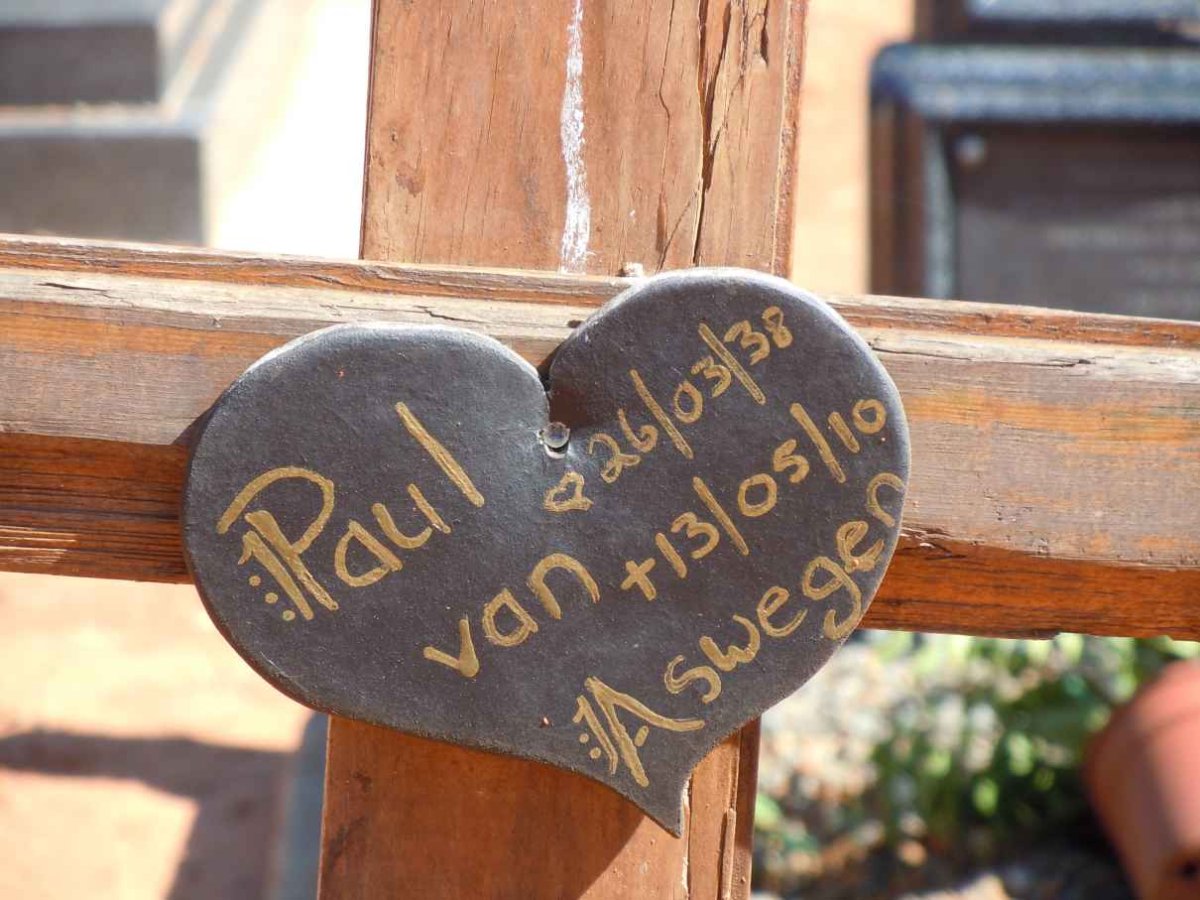 Paul
van
Aswegen
♡ 26/03/38
+13/05/10